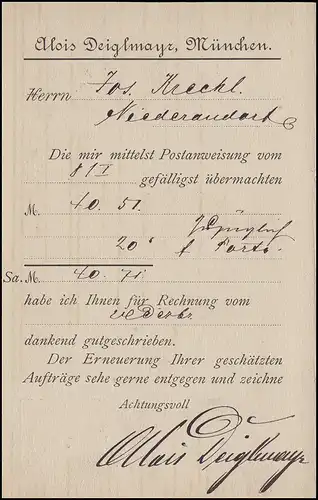 Alois Deiglmayr, München.
Herrn Jos. Kreckl.
Niederaudorf
Die mir mittelst Postanweisung vom
8/I gefälligst übermachten
M. 40.51.
20
f Porto.
Sa. M. 40.71
habe ich Ihnen für Rechnung vom
dankend gutgeschrieben.
Der Erneuerung Ihrer geschätzten
Aufträge sehe gerne entgegen und zeichne
Achtungsvoll
Alois Deiglmayr